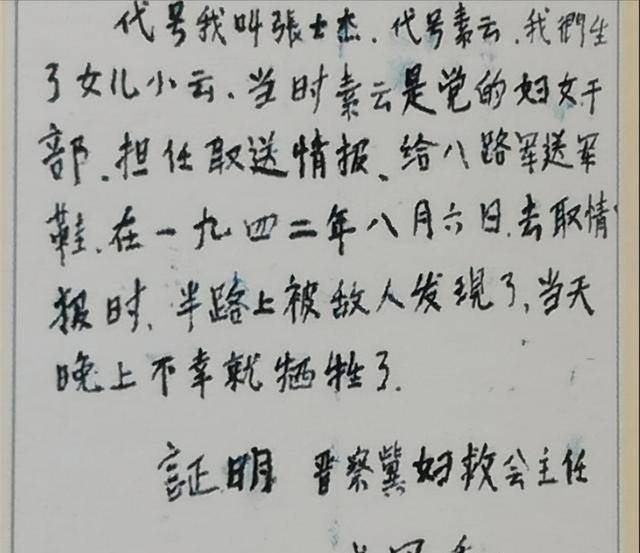 代号我叫張士杰、代号素云、我們生
了女儿小云、当时素云是党的妇女干
部、担任取送情报、给八路军送军
鞋、在一九四二年八月六日、去取情
报时、半路上被敌人发現了，当天
晚上不幸就牺牲了.
証明 晋察冀妇救会主任